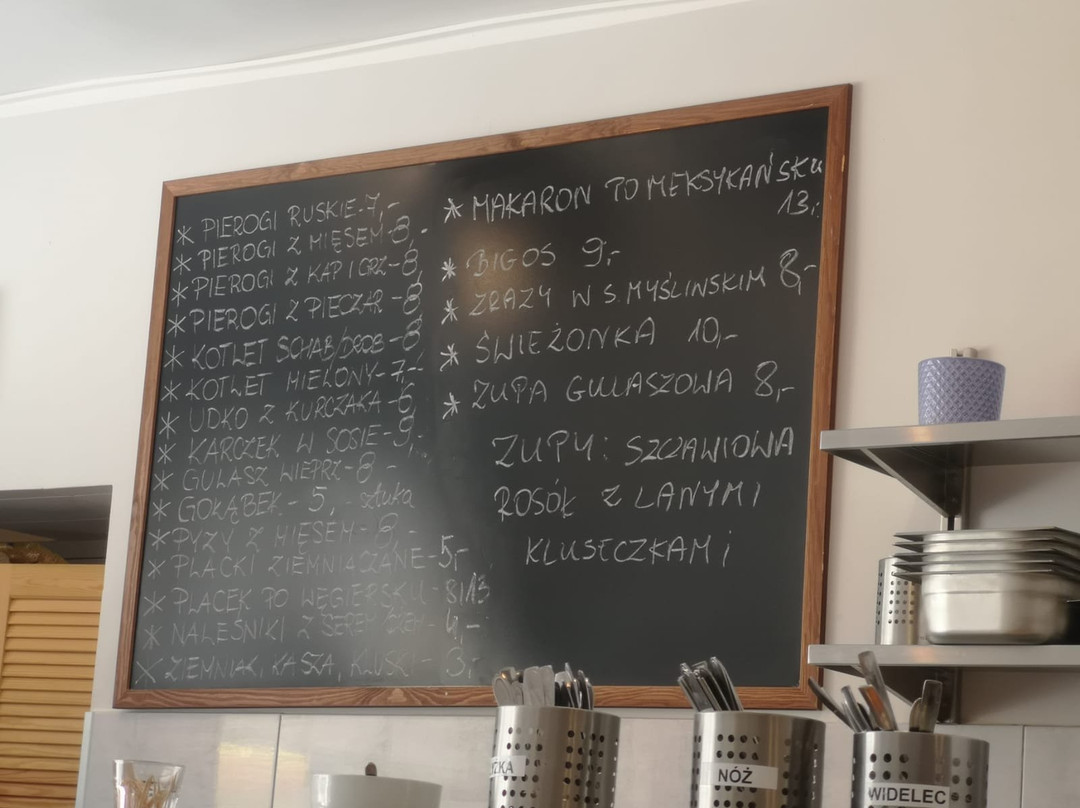 * PIEROGI RUSKIE-7,-
* PIEROGI Z MIĘSEM-8,-
* PIEROGI Z KAP I GRZ-8,
* PIEROGI Z PIECZAR-8
* KOTLET SCHAB/DROB-8
* KOTLET MIELONY-7,-
* UDKO Z KURCZAKA-6,
* KARCZEK W SOSIE-9,-
* GULASZ WIEPRZ-8,-
* GOŁĄBEK-5, sztuka
* PYZY Z MIĘSEM-8,-
* PLACKI ZIEMNIACZANE-5,-
* PLACEK PO WĘGIERSKU-8/13
* NALEŚNIKI Z SEREM 4,-
* ZIEMNIAK, KASZA, KLUSKI-3,-
* MAKARON PO MEKSYKAŃSKU
13,-
* BIGOS 9,-
* ZRAZY W S. MYŚLINSKIM 8,-
* ŚWIEŻONKA 10,-
* ZUPA GULASZOWA 8,-
ZUPY: SZCZAWIOWA
ROSÓŁ Z LANYMI
KLUSECZKAMI
NÓŻ
WIDELEC